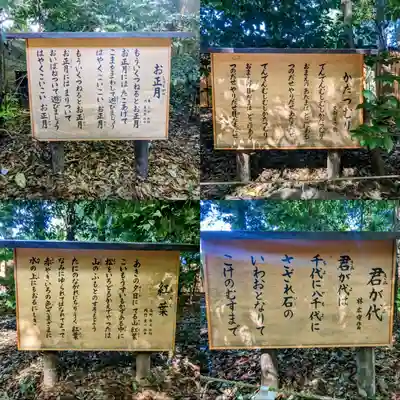 お正月
もういくつねるとお正月
お正月にはたこあげて
こまをまわして遊びましょう
はやくこいこいお正月
もういくつねるとお正月
お正月にはまりついて
おいばねついて遊びましょう
はやくこいこいお正月
かたつむり
でんでんむしむしかたつむり
おまえのあたまはどこにある
つのだせやりだせあたまだせ
でんでんむしむしかたつむり
おまえのめだまはどこにある
つのだせやりだせめだまだせ
紅葉
あきの夕日にてる山紅葉
こいもうすいもかずある中に
松をいろどるかえでやつたは
山のふもとのすそもよう
たにのながれにちりうく紅葉
なみにゆられてはなれてよって
赤やきいろの色さまざまに
水の上にもおるにしき
君が代
林広守作曲
君が代は
千代に八千代に
さざれ石の
いわおとなりて
こけのむすまで